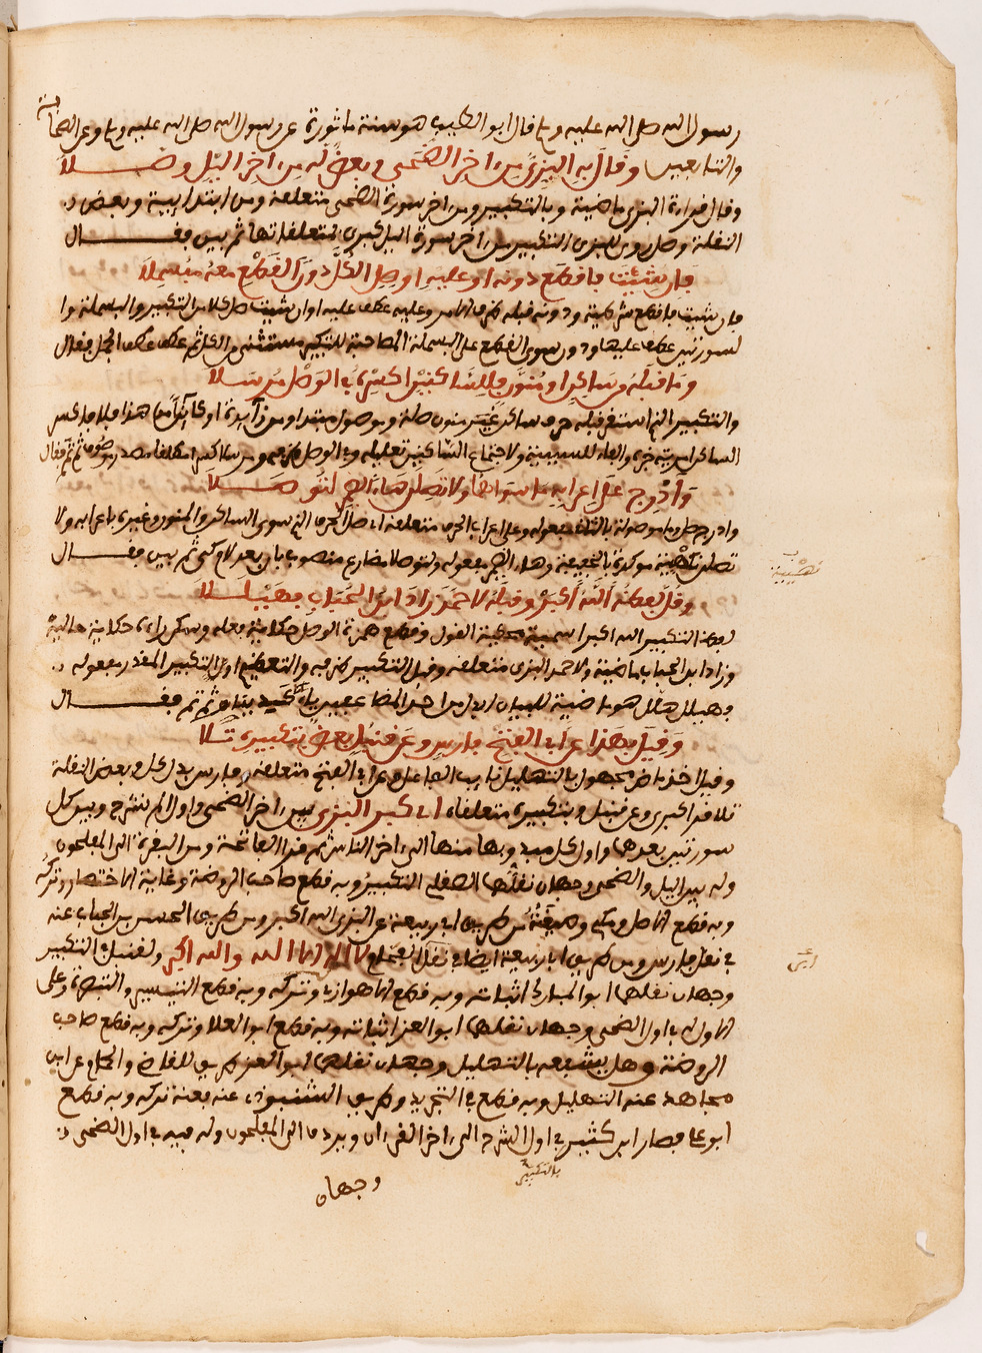 رسول الله صلى الله عليه وسلم قال ابو الطيب هو سنة ماثورة عن رسول الله صلى الله عليه وسلم وعن الصحابة
والتابعين وقال به البزي من اخر الضحى وبعض له من اخر اليل وصلا
وقال قراءة البزي ماضية وبالتكبير ومن اخر سورة الضحى متعلقه ومن ابتدايية وبعض
النقلة وصل روى للبزي التكبير من اخر سورة اليل كبرى متعلقاتها ثم بين فقال
فان شئت فاقطع دونه او عليه او صل الكل دون القطع معه مبسملا
فان شئت فاقطع شرطية ودونه قبله ظرف الامر وعليه عطف عليه او ان شئت صل كلا من التكبير والبسملة وا
لسورتين عطف عليها ودون سوى القطع على البسملة المصاحبة للتكبير مستثنى من الكل ثم عطف عطف الجمل فقال
وما قبله من ساكن او منون فللساكنين اكسره في الوصل مرسلا
والتكبير الذي استقر قبله حرف ساكن غير منون صلة وموصول مبتدا ومن زايدة
وادرج على اعرابه ما سواهما ولا تصلن هاء الضمير لتوصلا
وادرج صل وما موصولة بالثلاثة مفعوله وعلى اعراب الحرف متعلقه اي صل الحرف الذي سوى الساكن والمنون وغيره باعرابه ولا
تصلن نهيية موكدة بالخفيفة وهاء الضمير مفعوله ولتوصلا مضارع منصوب بان بعد لام كي ثم بين فقال
نهيية
وقل لفظه الله اكبر وقبله لاحمد زاد ابن الحباب فهيللا
لفظ التكبير الله اكبر اسمية محكية القول وقطع همزة الوصل حكاية فعله وسكن راءه حكاية حالية
وزاد ابن الحباب ماضية ولاحمد البزي متعلقه وقبل التكبير ظرفه والتعظيم او لا التكبير المقدر مفعوله
فهيلل هلل هو ماضية للبيان ابدل من احد المضاعفين ياء ثم تمم فقال
وقيل بهذا عن ابي الفتح فارس وعن قنبل بعض بتكبيره تلا
وقيل اخذ ماض مجهول بالتهليل نايب الفاعل وعن ابي الفتح متعلقه وفارس بدل كل وبعض النقلة
تلا قرا كبرى وعن قنبل وبتكبيره متعلقاه اي كبر البزي بين اخر الضحى واول الم نشرح وبين كل
سورتين بعدها واول كل منهما وبها منها الى اخر الناس ثم قرا الفاتحة ومن البقرة الى المفلحون
وله بين اليل والضحى وجهان نقلهما الصقلي التكبير وبه قطع صاحب الروضة وغاية الاختصار وتركه
وبه قطع الاصل ومكي وصيغته من طريق ابي ربيعة عن البزي الله اكبر ومن طريق الحسن بن الحباب عنه
في نقل فارس ومن طريق ابي ربيعة ايضا في نقل لا اله الا الله والله اكبر ولقنبل في التكبير
وجهان نقلهما ابو المبارك اثباته وبه قطع الاهوازي وتركه وبه قطع التيسير والتبصرة وعلى
الاول له في اول الضحى وجهان نقلهما ابو العز اثباته وبه قطع ابو العلا وتركه وبه قطع صاحب
الروضة وهل يشفعه بالتهليل وجهان نقلهما ابو العز طريق للقاضي والحمامي عن ابن
مجاهد عنه التهليل وبه قطع في التجريد وطريق الشنبوذي عنه فعنه تركه وبه قطع
ابو علي فصار ابن كثير في اول الشرح الى اخر القران ويرد ما الى المفلحون وله فيه في اول الضحى
بالتكبير
وجهان